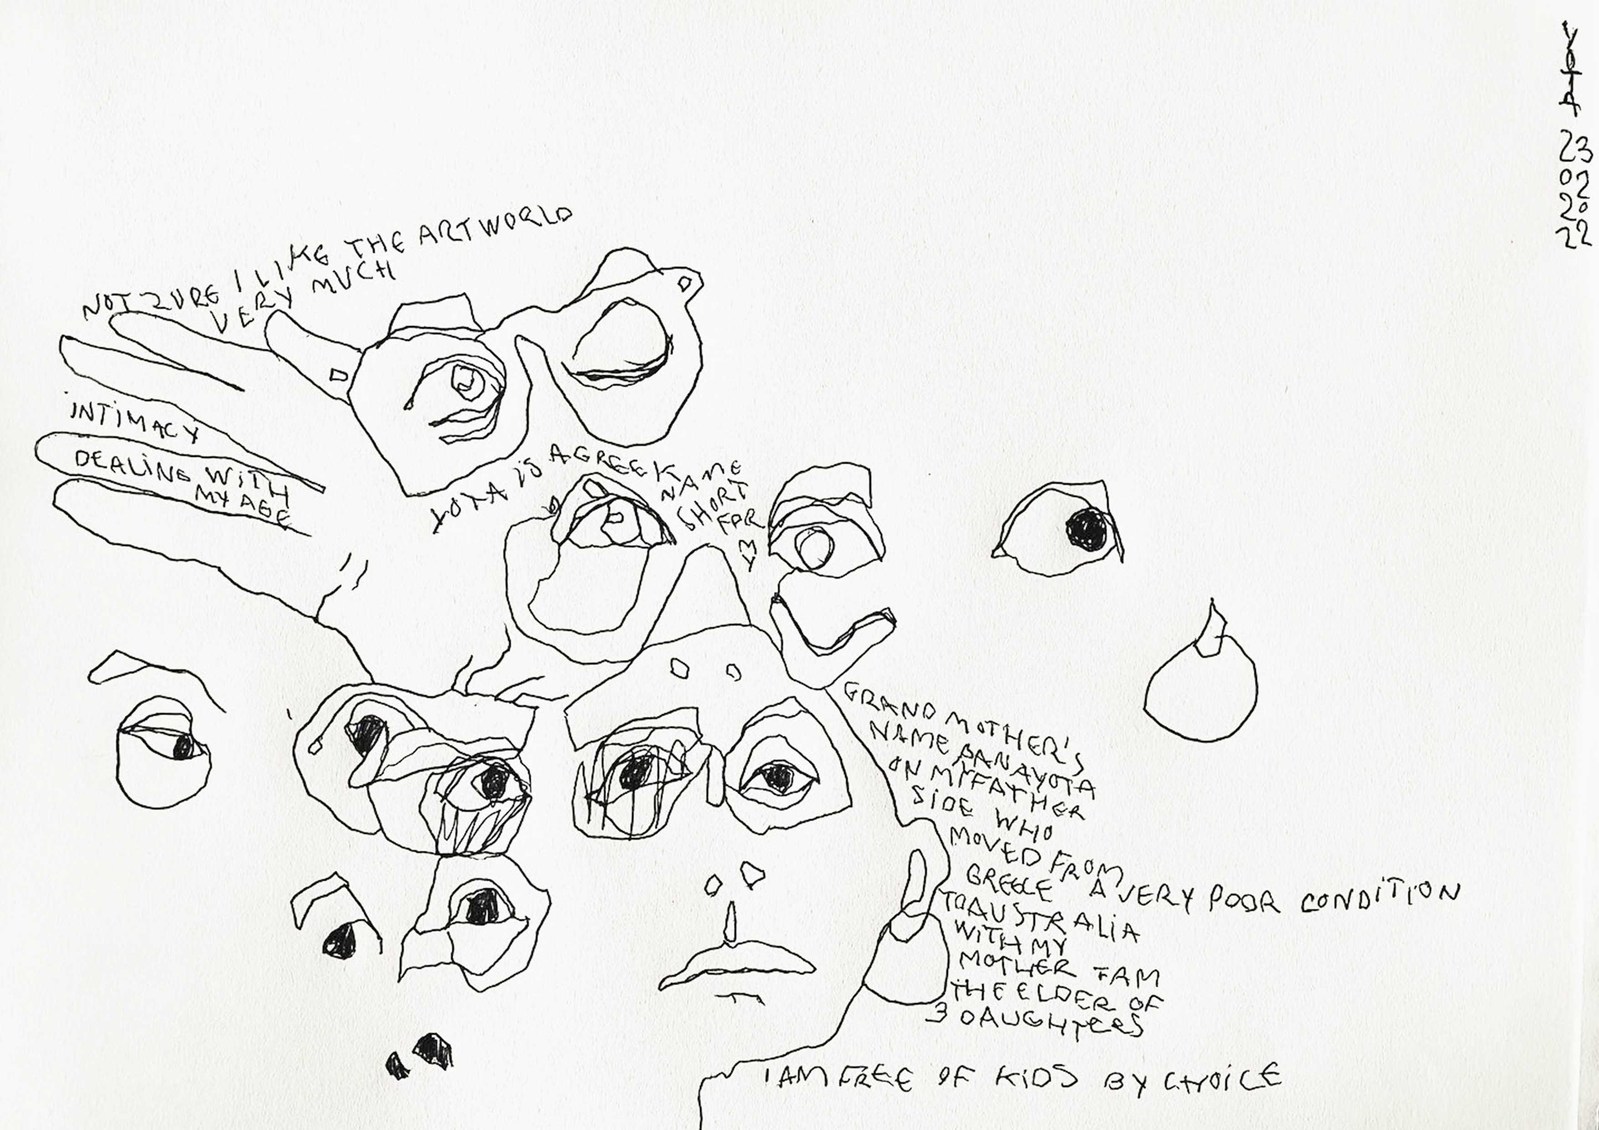 NOT ZURE I LIKE THE ARTWORLD
VERY MUCH
INTIMACY
DEALING WITH
MY AGE
YOTA IS A GREEK
NAME
SHORT
FOR
GRAND MOTHER'S
NAME PANAYOTA
ON MY FATHER
SIDE WHO
MOVED FROM
GREECE A VERY POOR CONDITION
TO AUSTRALIA
WITH MY
MOTHER I AM
THE ELDER OF
3 DAUGHTERS
I AM FREE OF KIDS BY CHOICE
23
02
20
22